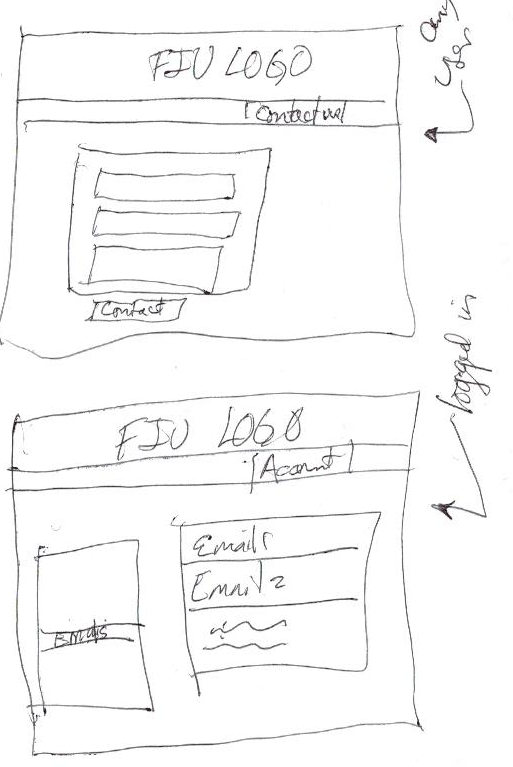 FIU LOGO
Contact us
Contact
Any
User
FIU LOGO
Account
Emails
Email 1
Email 2
logged in